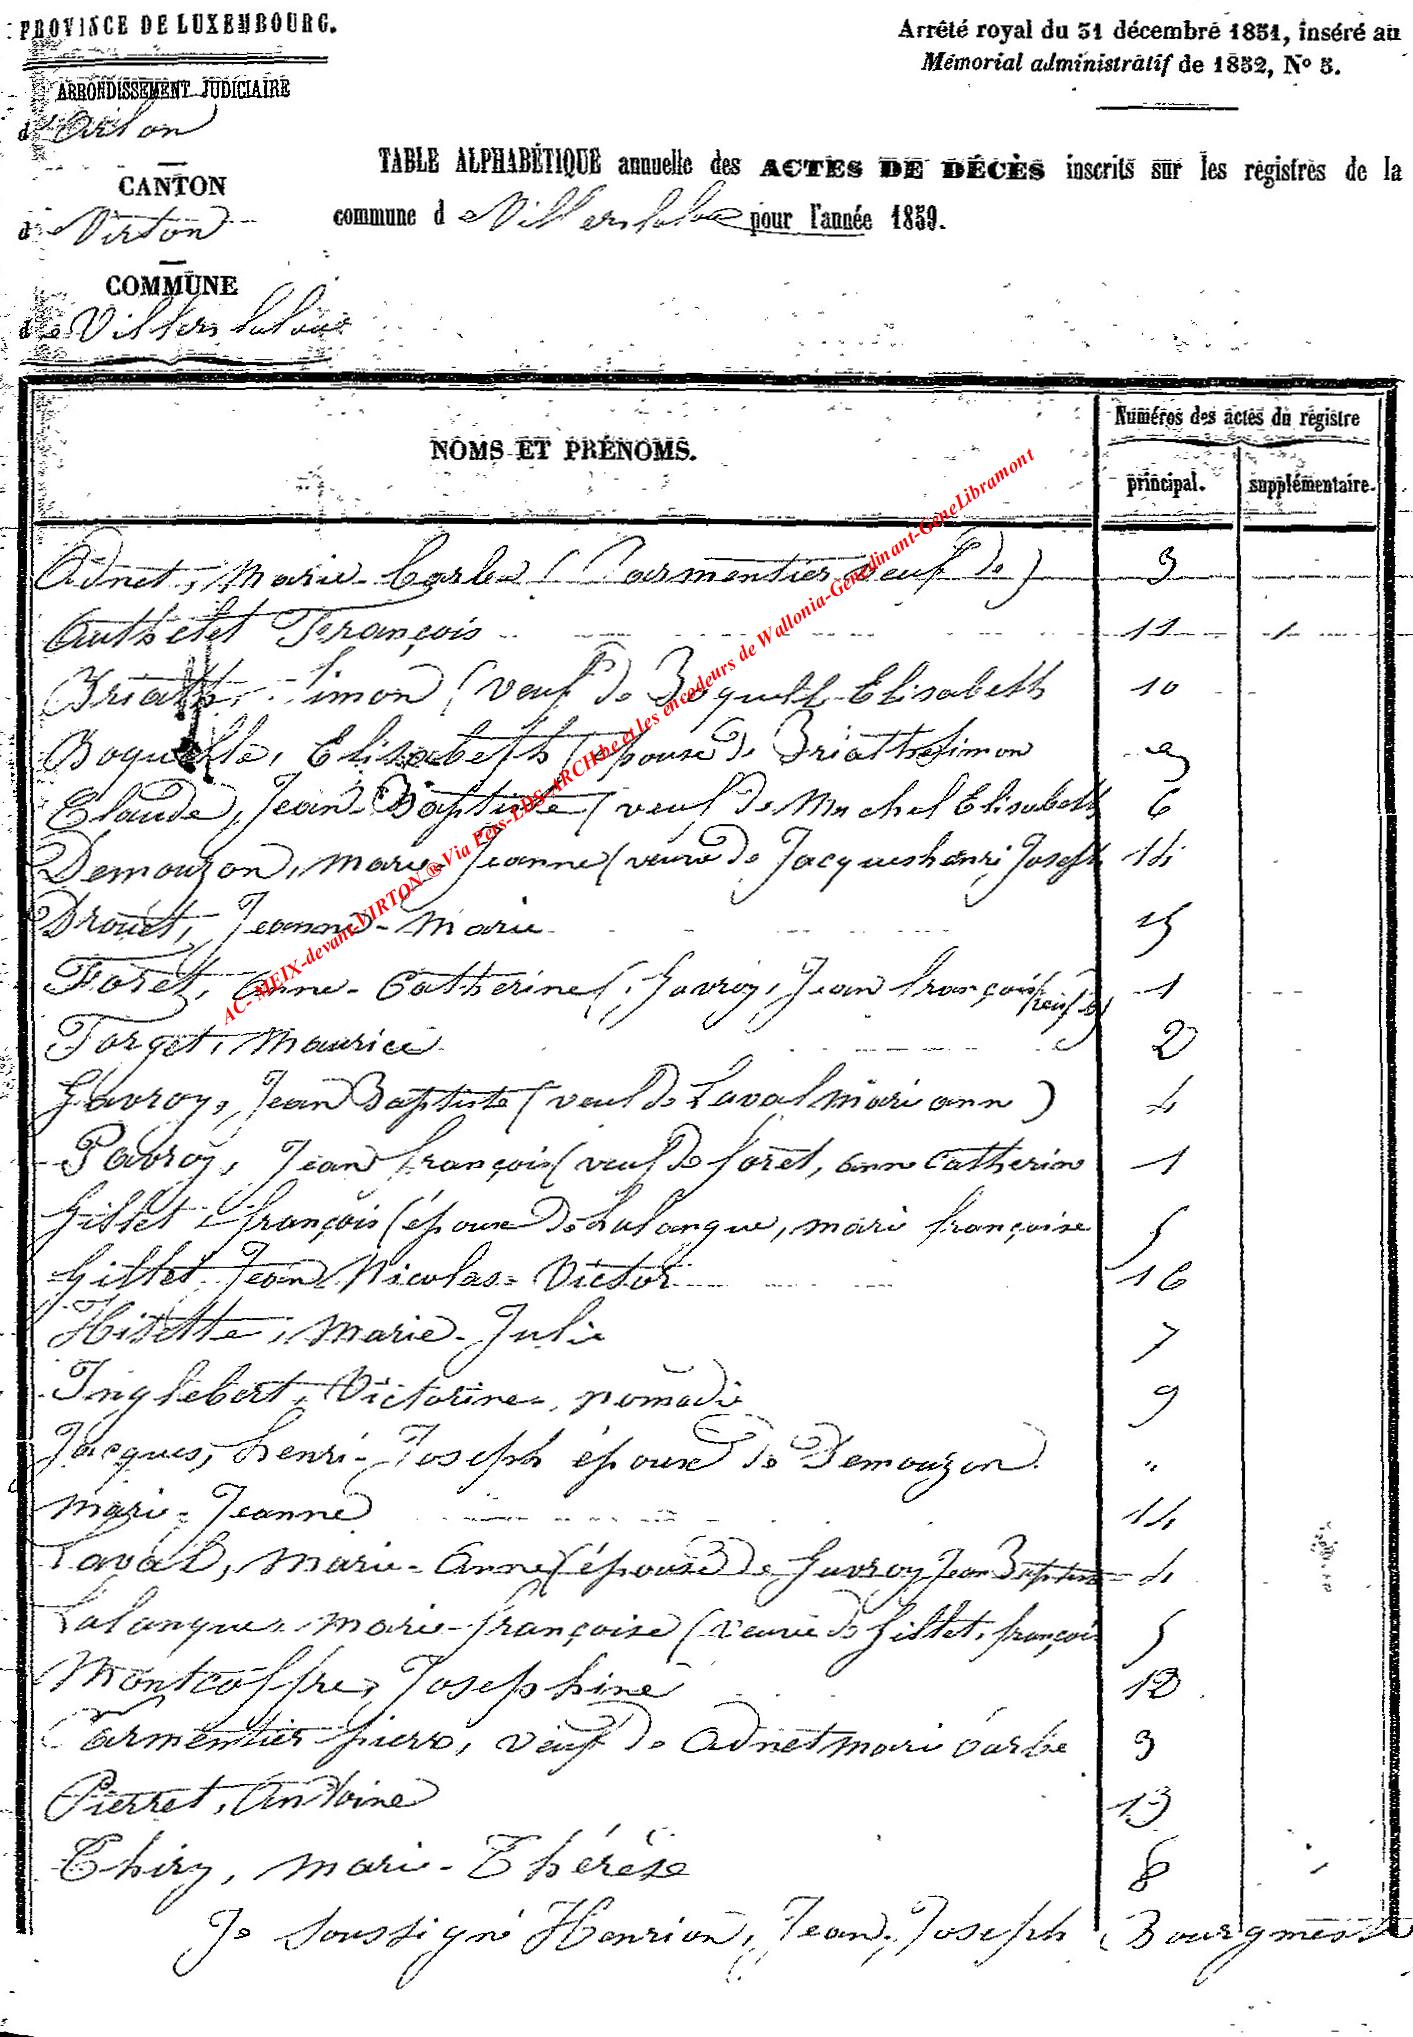 PROVINCE DE LUXEMBOURG.
ARRONDISSEMENT JUDICIAIRE
d'Arlon
CANTON
de Virton
COMMUNE
de Villers laloue
Arrêté royal du 31 décembre 1851, inséré au
Mémorial administratif de 1852, No 5.
TABLE ALPHABÉTIQUE annuelle des ACTES DE DÉCÈS inscrits sur les registres de la
commune de Villers laloue pour l'année 1859.
NOMS ET PRÉNOMS.
Numéros des actes du registre
principal. supplémentaire.
Adnet, Marie- Barbe (Parmentier veuf de) 3
Authelet François 11
Briath, Simon (veuf de Boquelle Elisabeth 10
Boquelle, Elisabeth (épouse de Briath Simon
Claude, Jean-Baptiste (veuf de Michel Elisabeth 6
Demouzon, Marie-Jeanne (veuve de Jacques henri Joseph 14
Drouet, Jeanne-Marie 15
Foret, Anne-Catherine (Gavroy, Jean françois veuf de) 1
Forget, Maurice 2
Gavroy, Jean Baptiste (veuf de Laval Marie ann) 4
Gavroy, Jean françois (veuf de foret, ann Catherine 1
Gillet françois (époux de Lalangue, mari françoise 5
Gillet Jean Nicolas-Victor 16
Hitette, Marie-Julie 7
Inglebert, Victorine, nomade 9
Jacques, henri-Joseph époux de Demouzon "
Marie-Jeanne 14
Laval, Marie-Anne (épouse de Gavroy Jean Baptiste 4
Lalangue, Marie-françoise (veuve de Gillet, françois 5
Montcoffre, Josephine 12
Parmentier pierre, veuf de Adnet mari barbe 3
Pierret, Antoine 13
Thiry, Mari-Thérèse 8
Je soussigné Henrion, Jean, Joseph Bourgmest
AC-MEIX-devant-VIRTON ® Via Pers-LDS-ARCH.be et les encodeurs de Wallonia-Genedinant-GeneLibramont